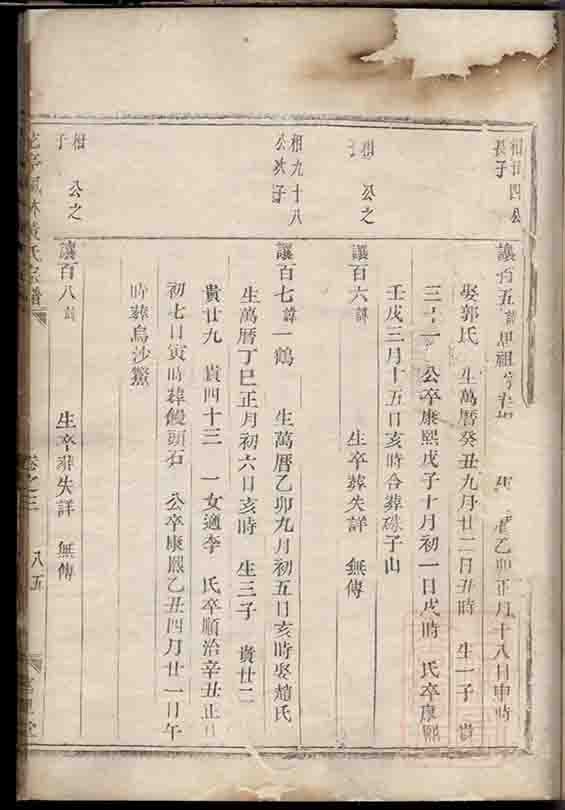 相廿四公
長子
讓百五諱思祖字 生 曆乙卯正月十八日申時
娶郭氏 生萬曆癸丑九月廿二日丑時 生一子 貴
三十一 公卒康熙戊子十月初一日戌時 氏卒康熙
壬戌三月十五日亥時合葬硃子山
相 公之
子
讓百六諱 生卒葬失詳 無傳
相九十八
公次子
讓百七諱一鶴 生萬曆乙卯九月初五日亥時娶趙氏
生萬曆丁巳正月初六日亥時 生三子 貴廿二
貴廿九 貴四十三 一女適李 氏卒順治辛丑正月
初七日寅時葬饅頭石 公卒康熙乙丑四月廿一日午
時葬烏沙
相 公之
子
讓百八諱 生卒葬失詳 無傳
林黃氏宗譜 卷之三 八五 堂